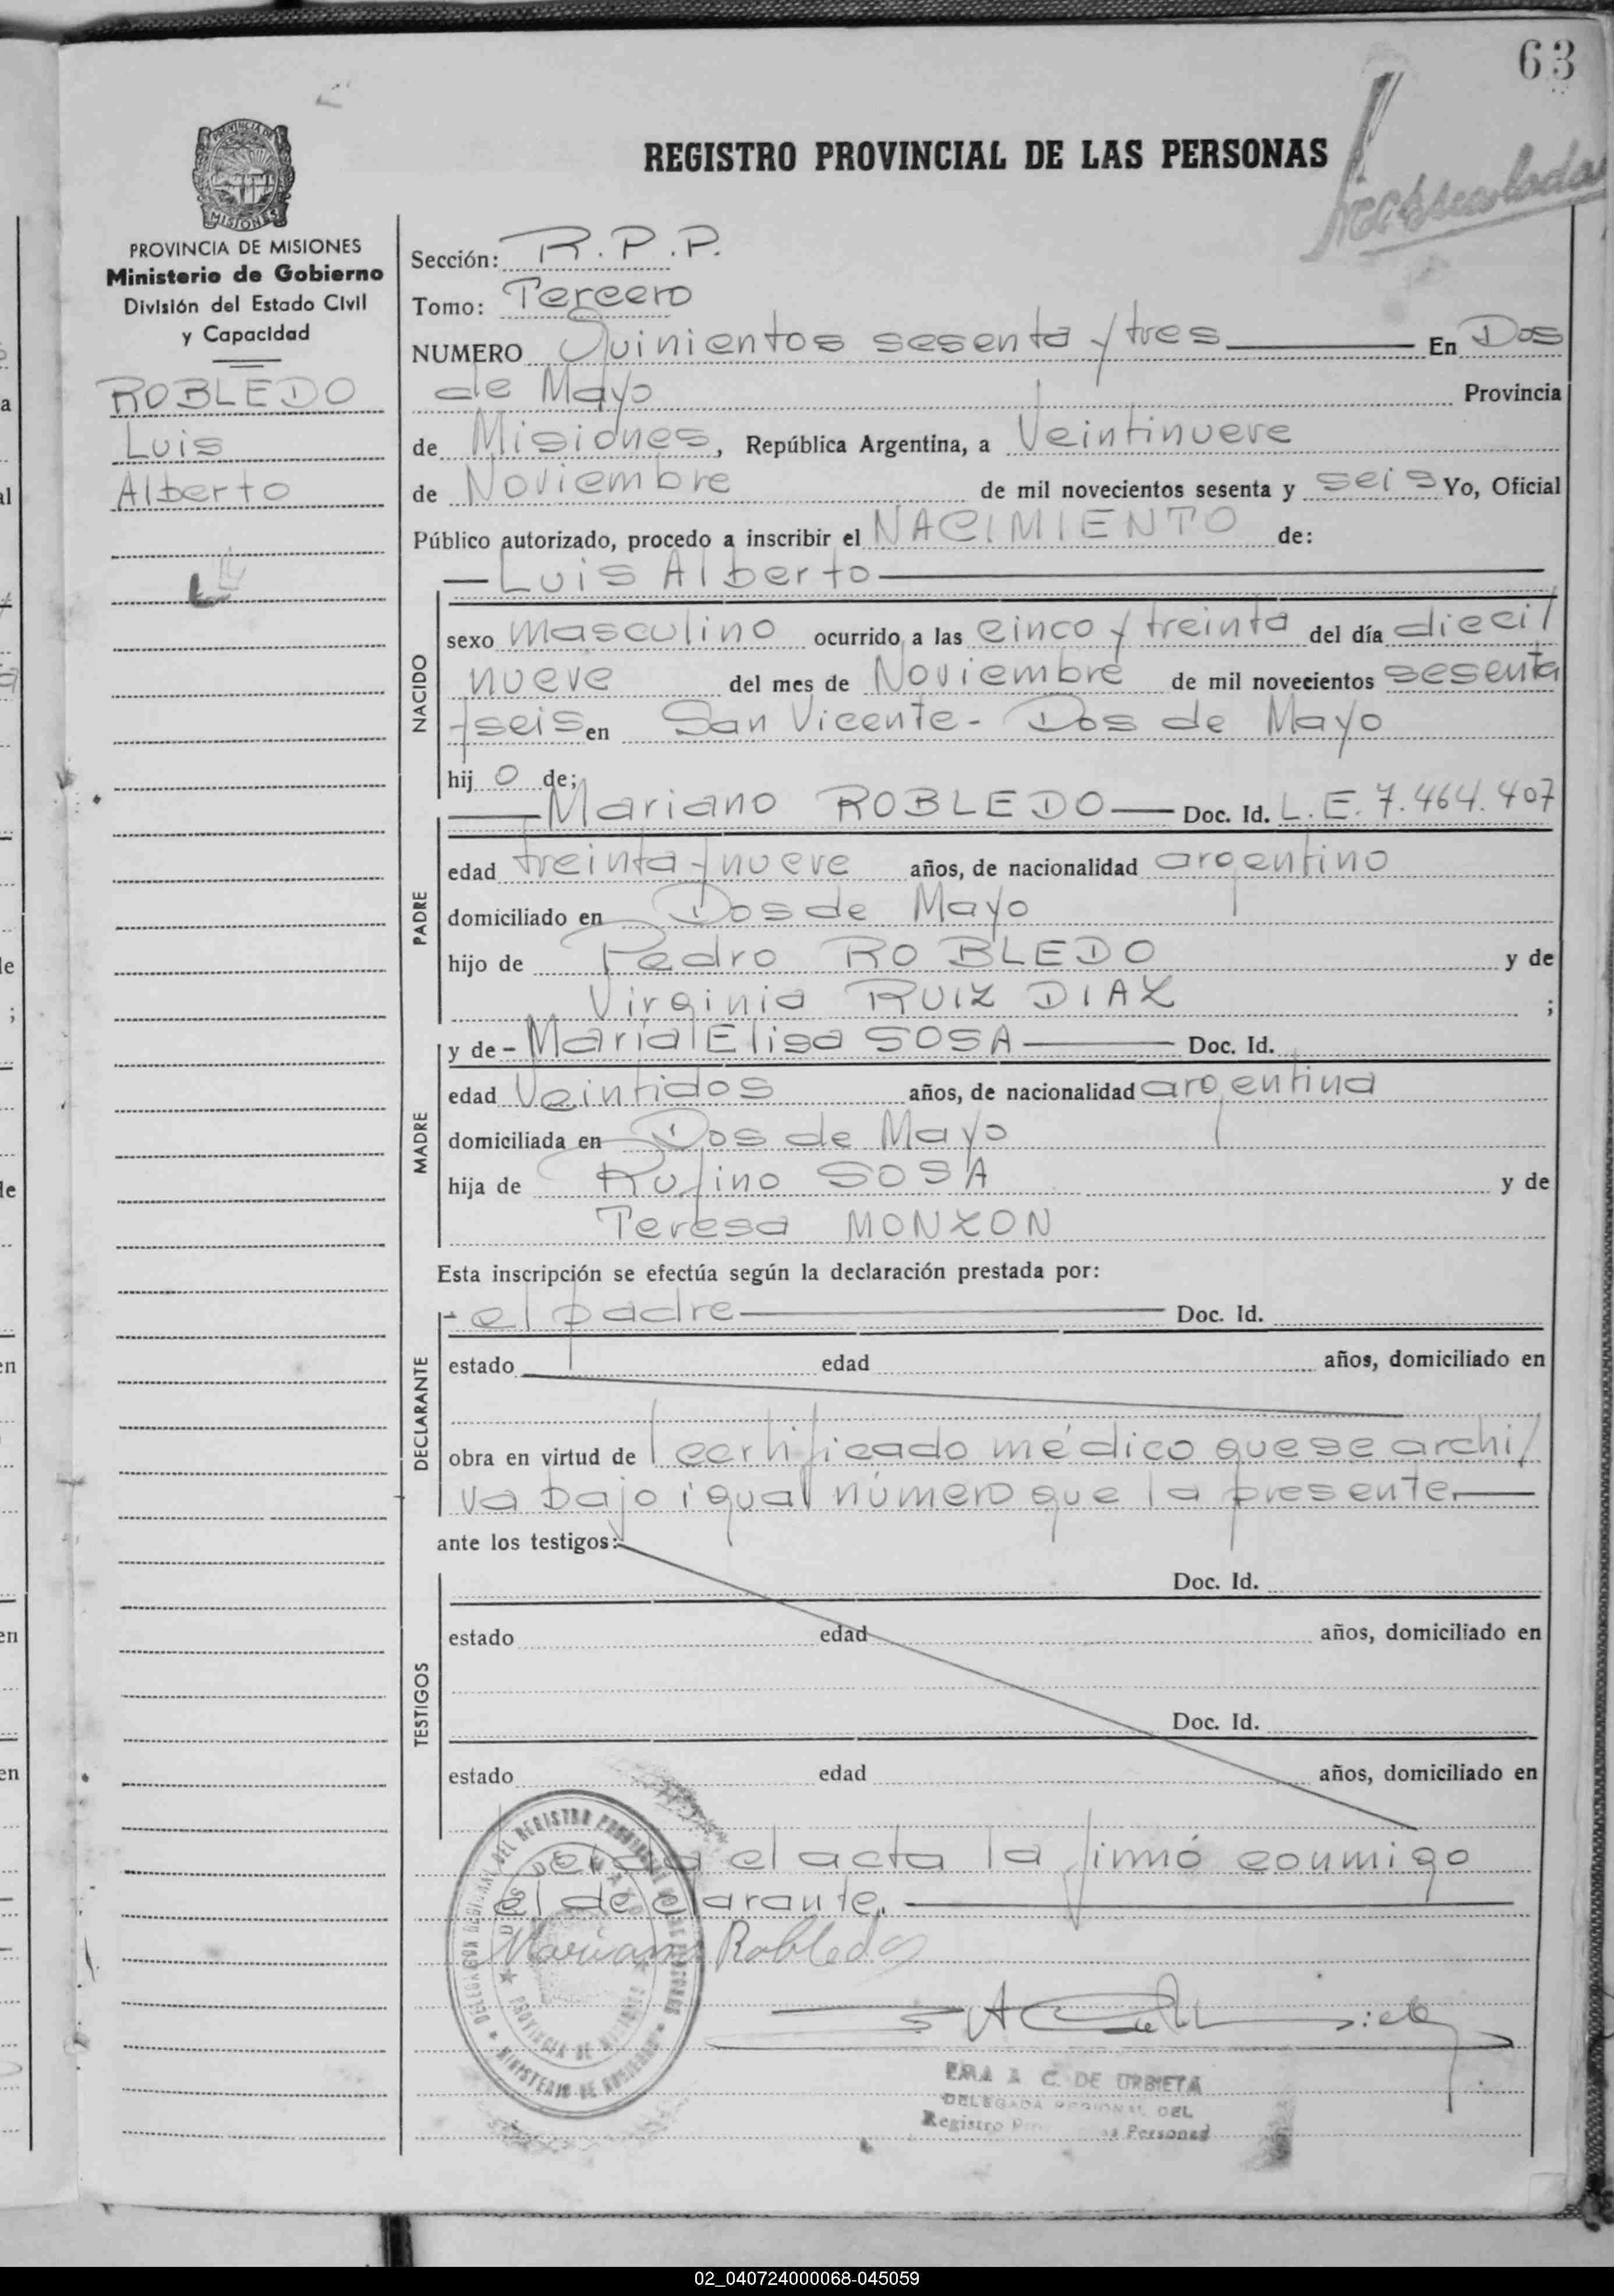 63
REGISTRO PROVINCIAL DE LAS PERSONAS
PROVINCIA DE MISIONES
MISIONES
PROVINCIA DE MISIONES
Ministerio de Gobierno
División del Estado Civil
y Capacidad
ROBLEDO
Luis
Alberto
Sección: R.P.P.
Tomo: Tercero
NUMERO Quinientos sesenta y tres En Dos
de Mayo Provincia
de Misiones, República Argentina, a Veintinueve
de Noviembre de mil novecientos sesenta y seis Yo, Oficial
Público autorizado, procedo a inscribir el NACIMIENTO de:
Luis Alberto
NACIDO
sexo masculino ocurrido a las cinco y treinta del día dieci/
nueve del mes de Noviembre de mil novecientos sesenta
y seis en San Vicente - Dos de Mayo
hij o de;
Mariano ROBLEDO Doc. Id. L.E. 7.464.407
PADRE
edad treinta y nueve años, de nacionalidad argentino
domiciliado en Dos de Mayo
hijo de Pedro ROBLEDO y de
Virginia RUIZ DIAZ ;
y de - María Elisa SOSA Doc. Id.
MADRE
edad Veintidos años, de nacionalidad argentina
domiciliada en Dos de Mayo
hija de Rufino SOSA y de
Teresa MONZON
Esta inscripción se efectúa según la declaración prestada por:
- el padre Doc. Id.
DECLARANTE
estado edad años, domiciliado en
obra en virtud de certificado médico que se archi/
va bajo igual número que la presente.
ante los testigos:
TESTIGOS
Doc. Id.
estado edad años, domiciliado en
Doc. Id.
estado edad años, domiciliado en
Leída el acta la firmó conmigo
el declarante.
Mariano Robledo
EMA A. C. DE URBIETA
DELEGADA REGIONAL DEL
Registro Personas
02_040724000068-045059